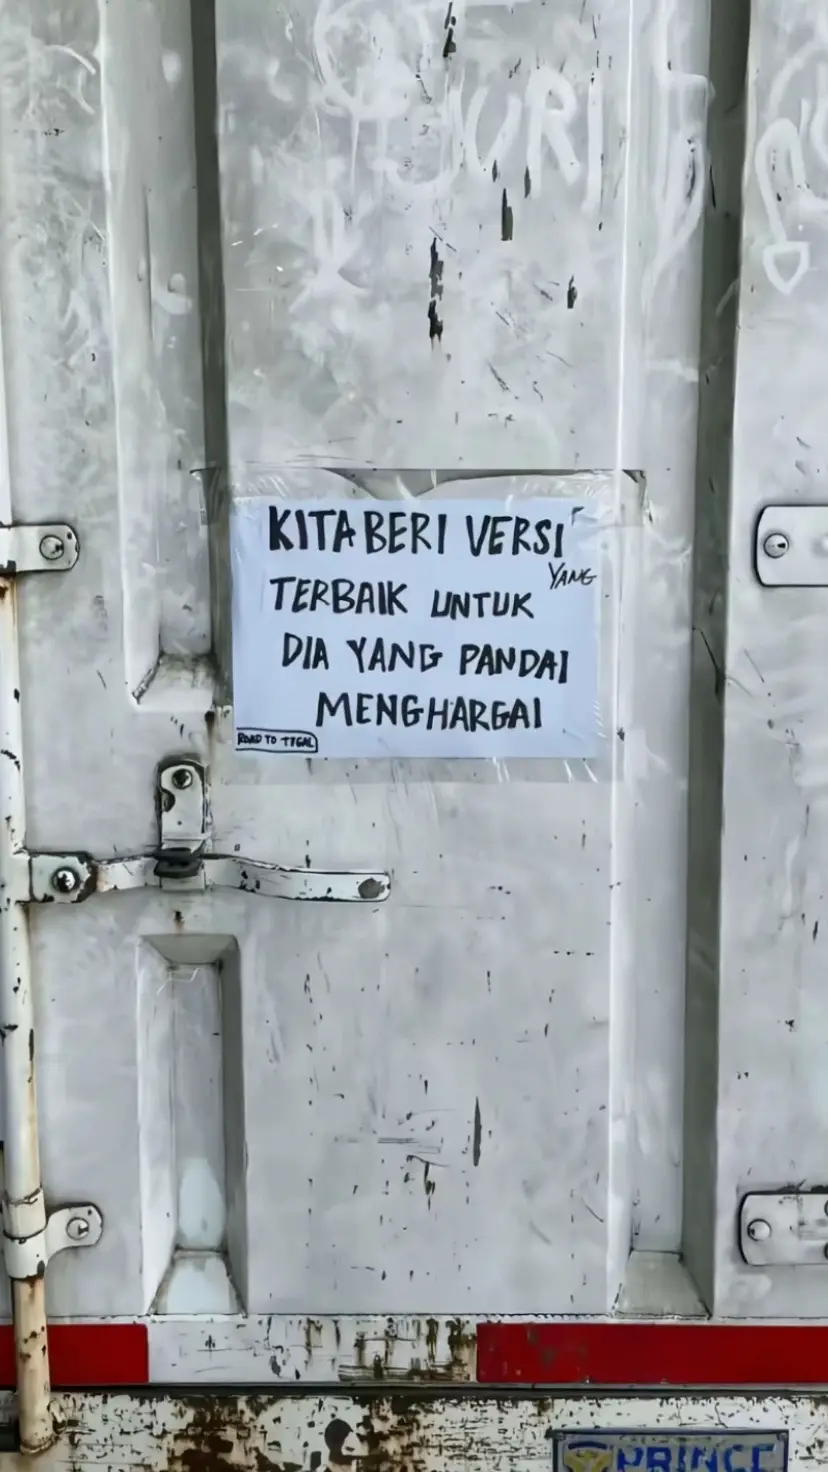 URI
KITA BERI VERSI
YANG
TERBAIK UNTUK
DIA YANG PANDAI
MENGHARGAI
ROAD TO TEGAL
PRINCE